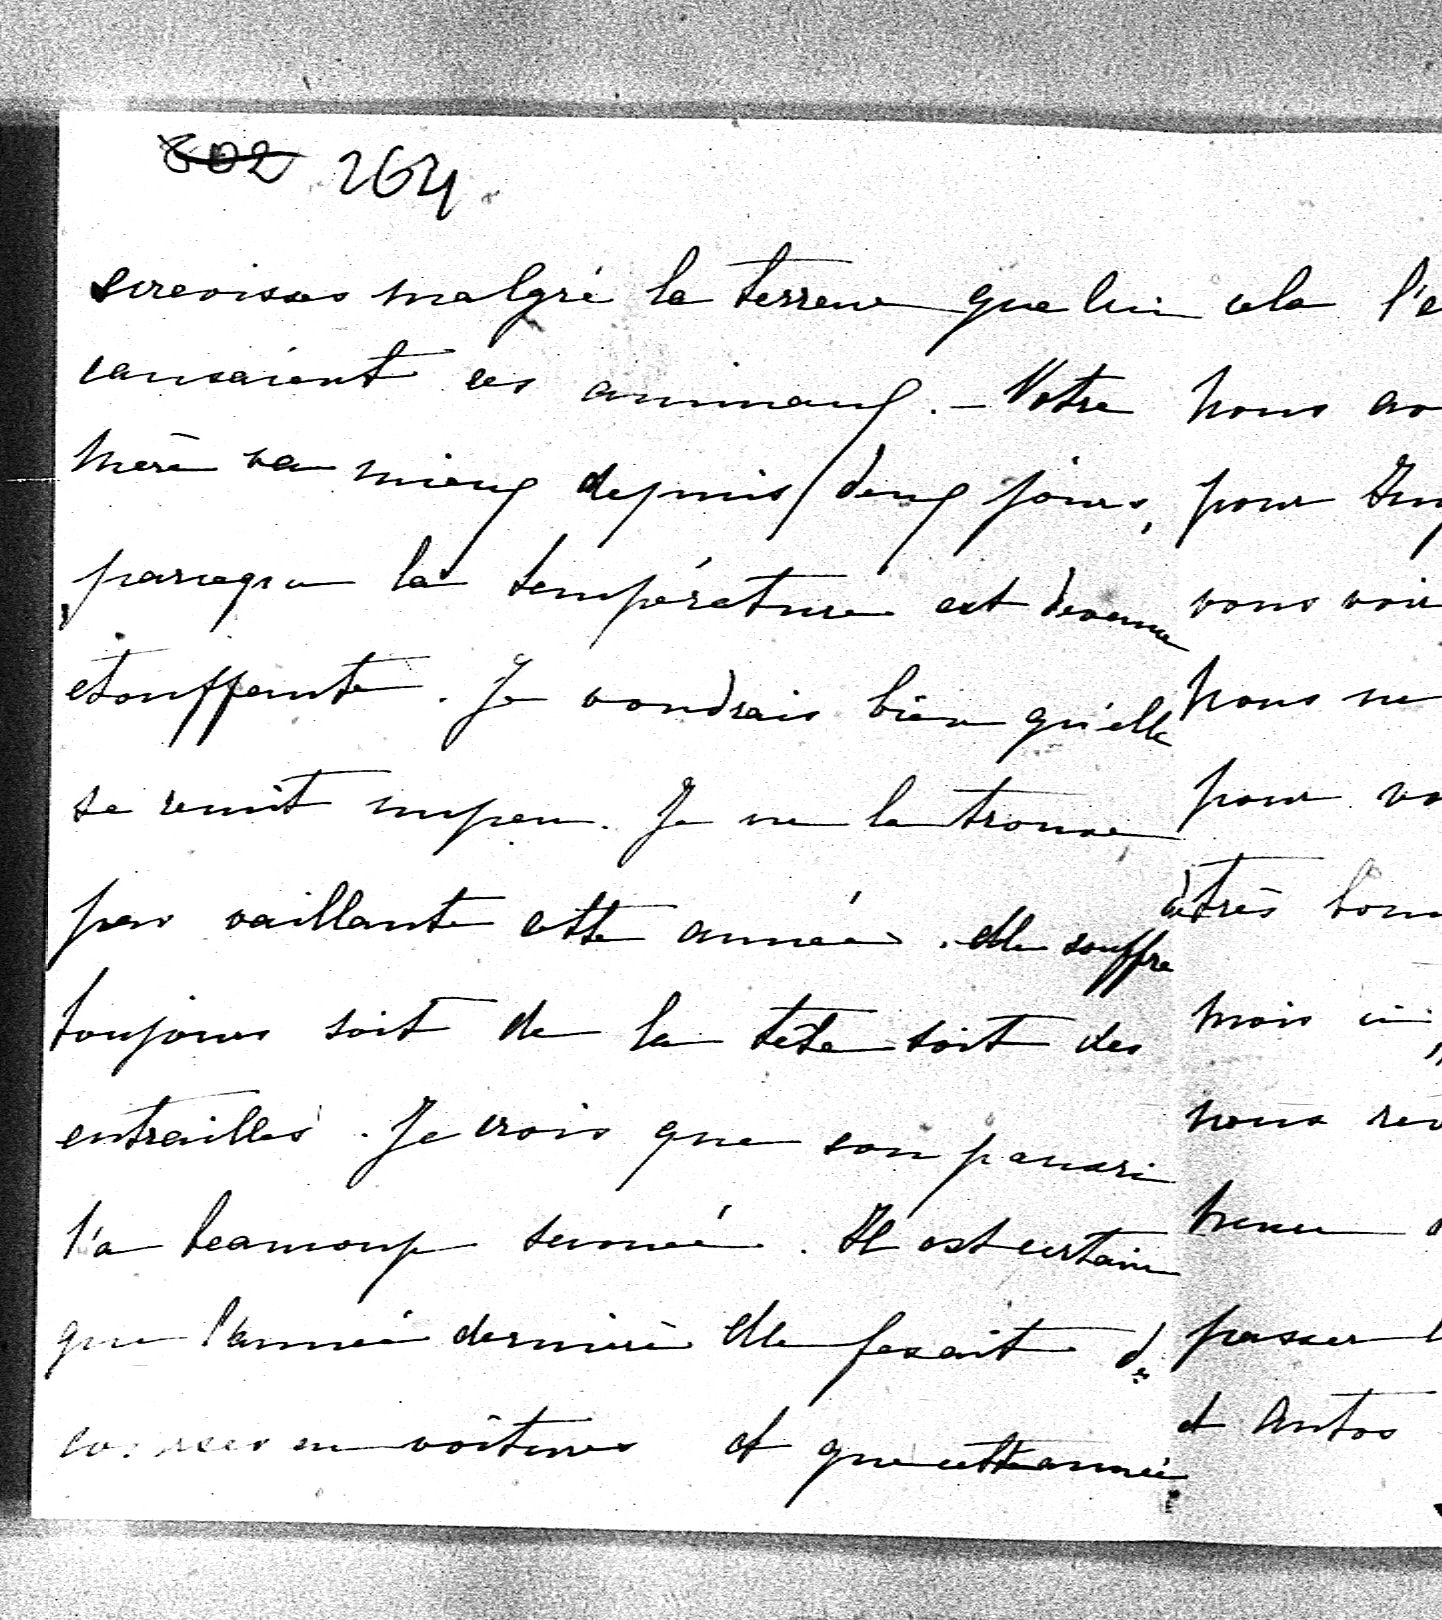 802 264.
ecrevisses malgré la terreur que lui
causaient ces animaux. – Votre
mère va mieux depuis deux jours,
parceque la température est devenue
etouffante. Je voudrais bien qu'elle
se remit un peu. Je ne la trouve
pas vaillante cette année. elle souffre
toujours soit de la tête soit des
entrailles. Je crois que son panari
l'a beaucoup secouée. Il est certain
que l'année dernière elle fesait des
courses en voitures et que cette année
cela l'e
nous av
pour
vous voir
nous ne
pour vo
très bon
mois ici,
nous rev
passer l
et Antos